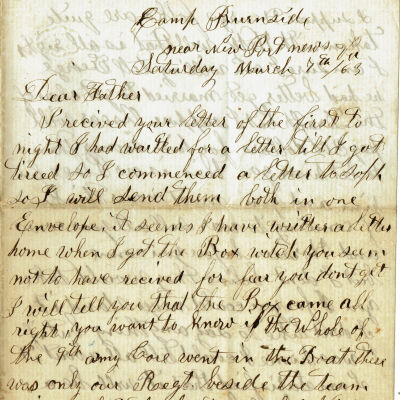 Camp Burnside
near New Port news Va
Saturday March 7th/63
Dear Father
I recived your letter of the first to
night I had waitted for a letter till I got
tired so I commenced a letter to Soph
so I will send them both in one
Envelope, it seems I have written a letter
home when I got the Box witch you seem
not to have recived for fear you dont get
I will tell you that the Box came all
right, you want to know if the whole of
the 9th army Core went in the Boat there
was only our Regt beside the team